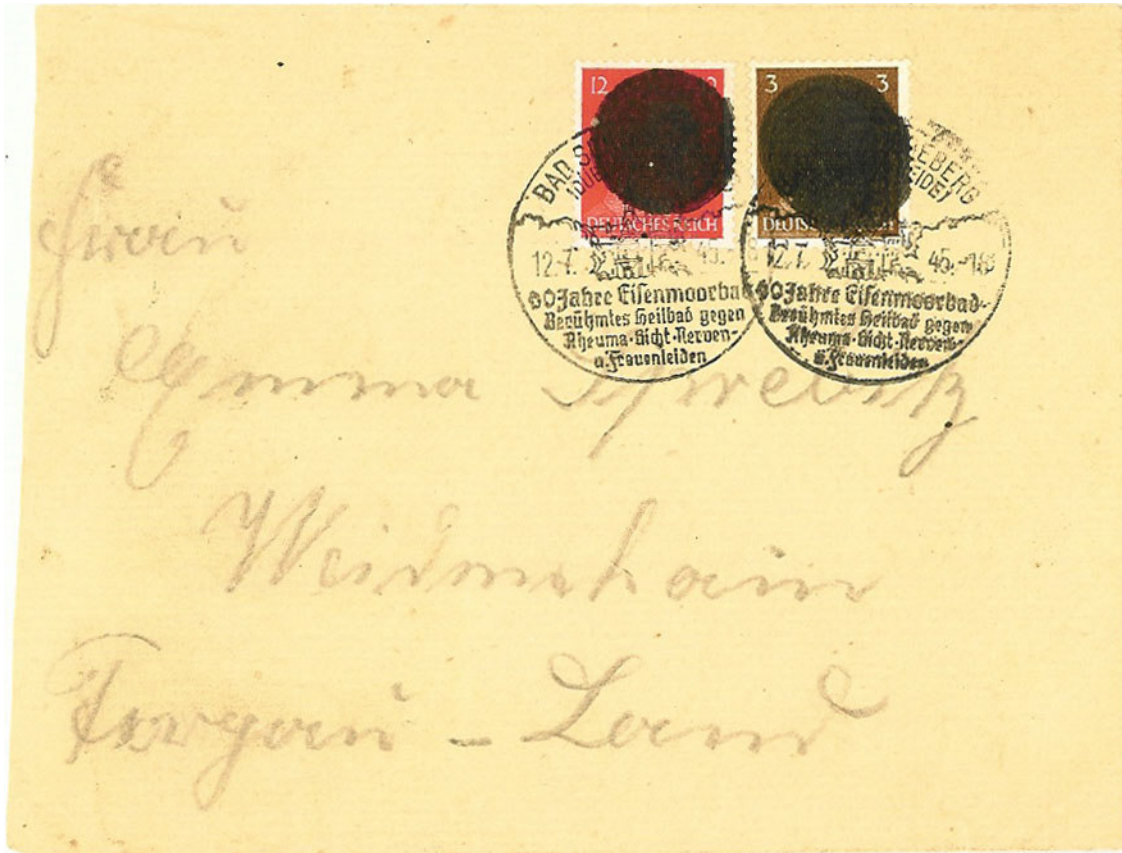 12
3 3
DEUTSCHES REICH
BAD S
EBERG
12.7. 45.-
12.7. 45.-18
60 Jahre Eisenmoorbad
Berühmtes Heilbad gegen
Rheuma-Gicht-Nerven-
u. Frauenleiden
60 Jahre Eisenmoorbad-
Berühmtes Heilbad gegen
Rheuma-Gicht-Nerven-
u. Frauenleiden
Frau
Emma
Weidenhain
Torgau - Land